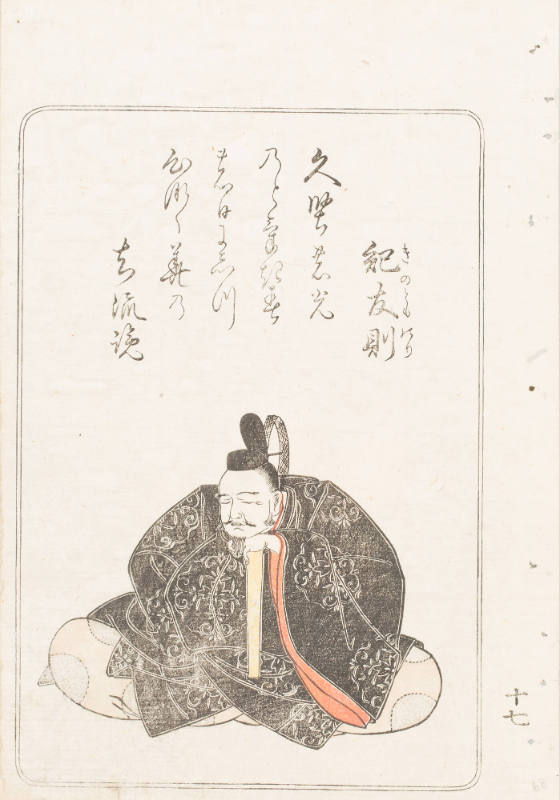 紀友則
きのとものり
久堅の光
のとけき春
の日にしつ
心なく花の
ちる覧
十七